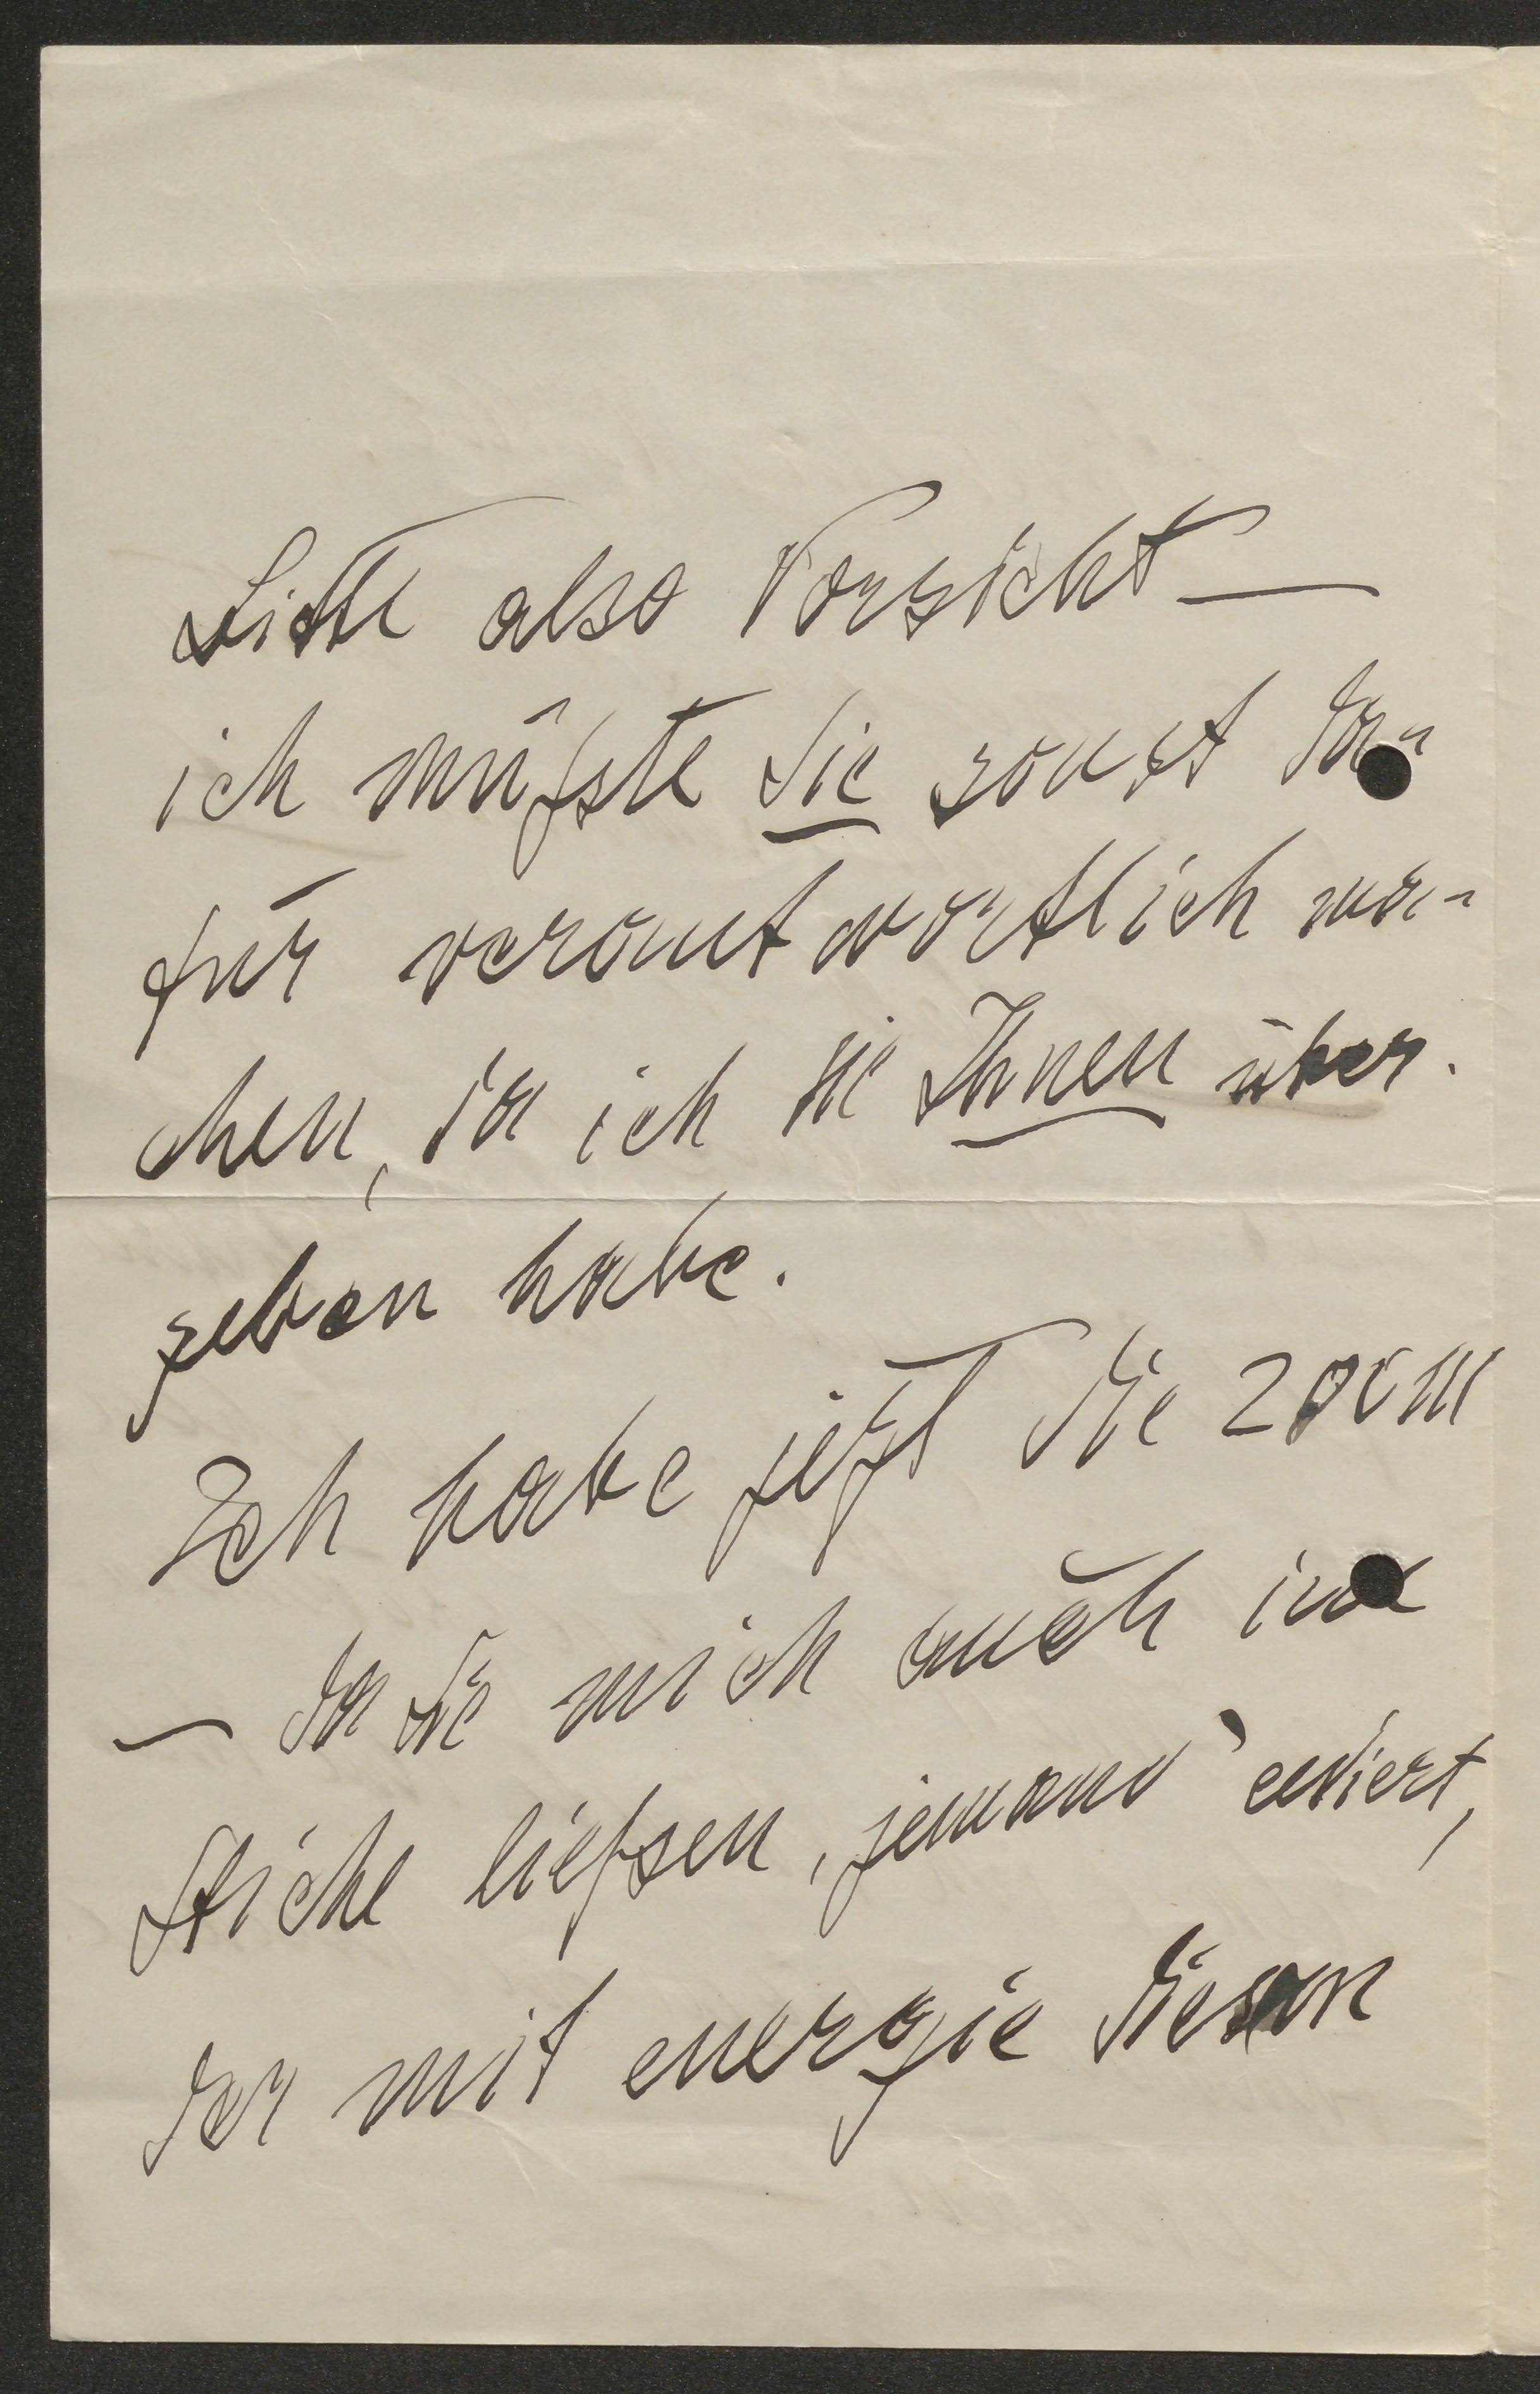 Bitte also Vorsicht —
ich müsste Sie sonst da-
für verantwortlich ma-
chen, da ich sie Ihnen über-
geben habe.
Ich habe jetzt die 200 M
— da Sie mich auch im
Stiche liessen, jemand cediert,
der mit energie diesen